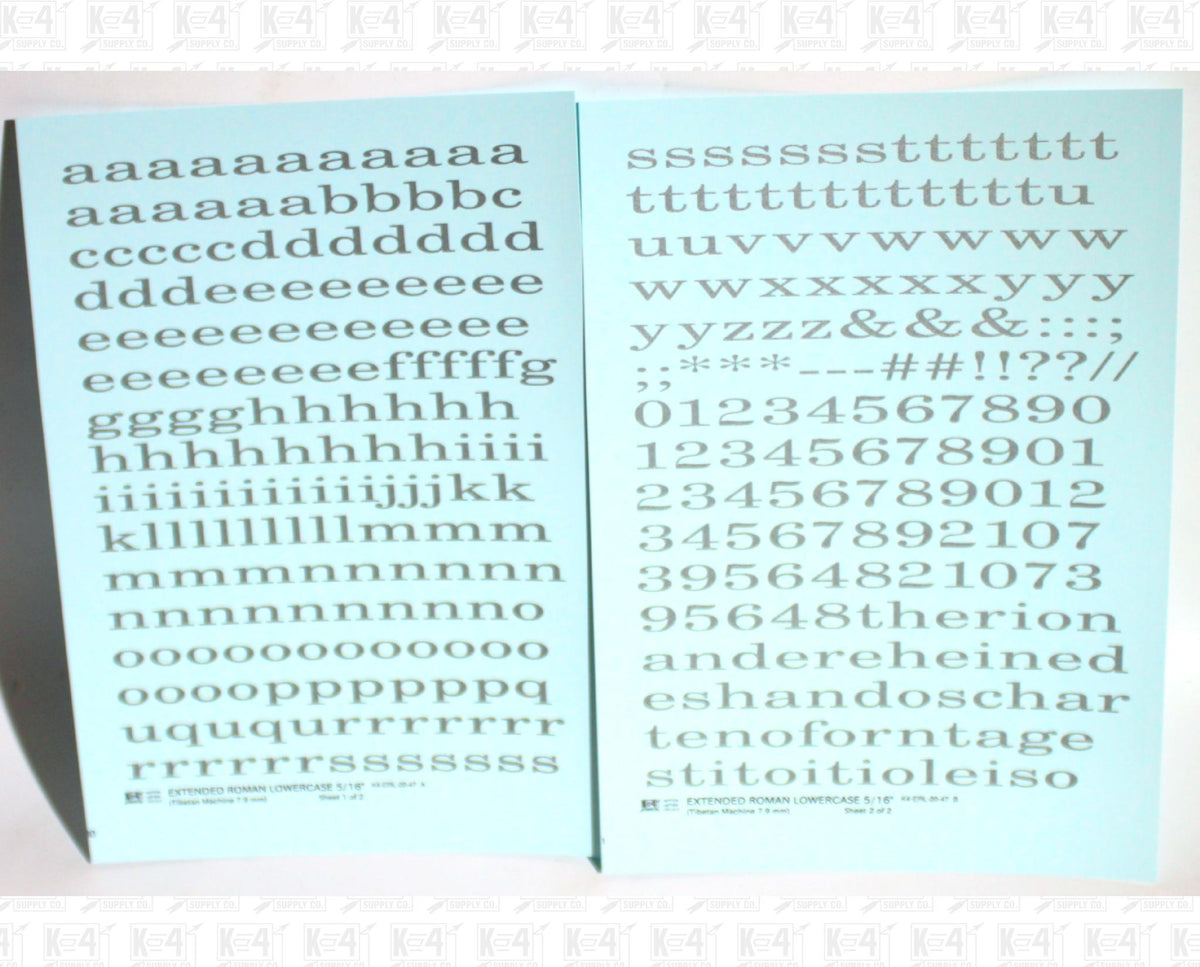 aaaaaaaaaaa
aaaaaabbbbc
cccccddddddd
dddeeeeeeeee
eeeeeeeeeeee
eeeeeeeefffffg
gggghhhhhh
hhhhhhhhiiii
iiiiiiiiiiiijjjkkk
klllllllllmmm
mmmmnnnnnn
nnnnnnnnnno
oooooooooooo
oooopppppppq
uququrrrrrrr
rrrrrrsssssss
EXTENDED ROMAN LOWERCASE 5/16"
(Tibetan Machine 7.9 mm) Sheet 1 of 2
ssssssstttttttt
tttttttttttttu
uuvvvwwww
wwxxxxxyyy
yyzzz&&&:::;
;;***---##!!??//
01234567890
12345678901
23456789012
34567892107
39564821073
95648therion
andereheined
eshandoschar
tenoforntage
stitoitioleiso
EXTENDED ROMAN LOWERCASE 5/16"
(Tibetan Machine 7.9 mm) Sheet 2 of 2
K-4
SUPPLY CO.